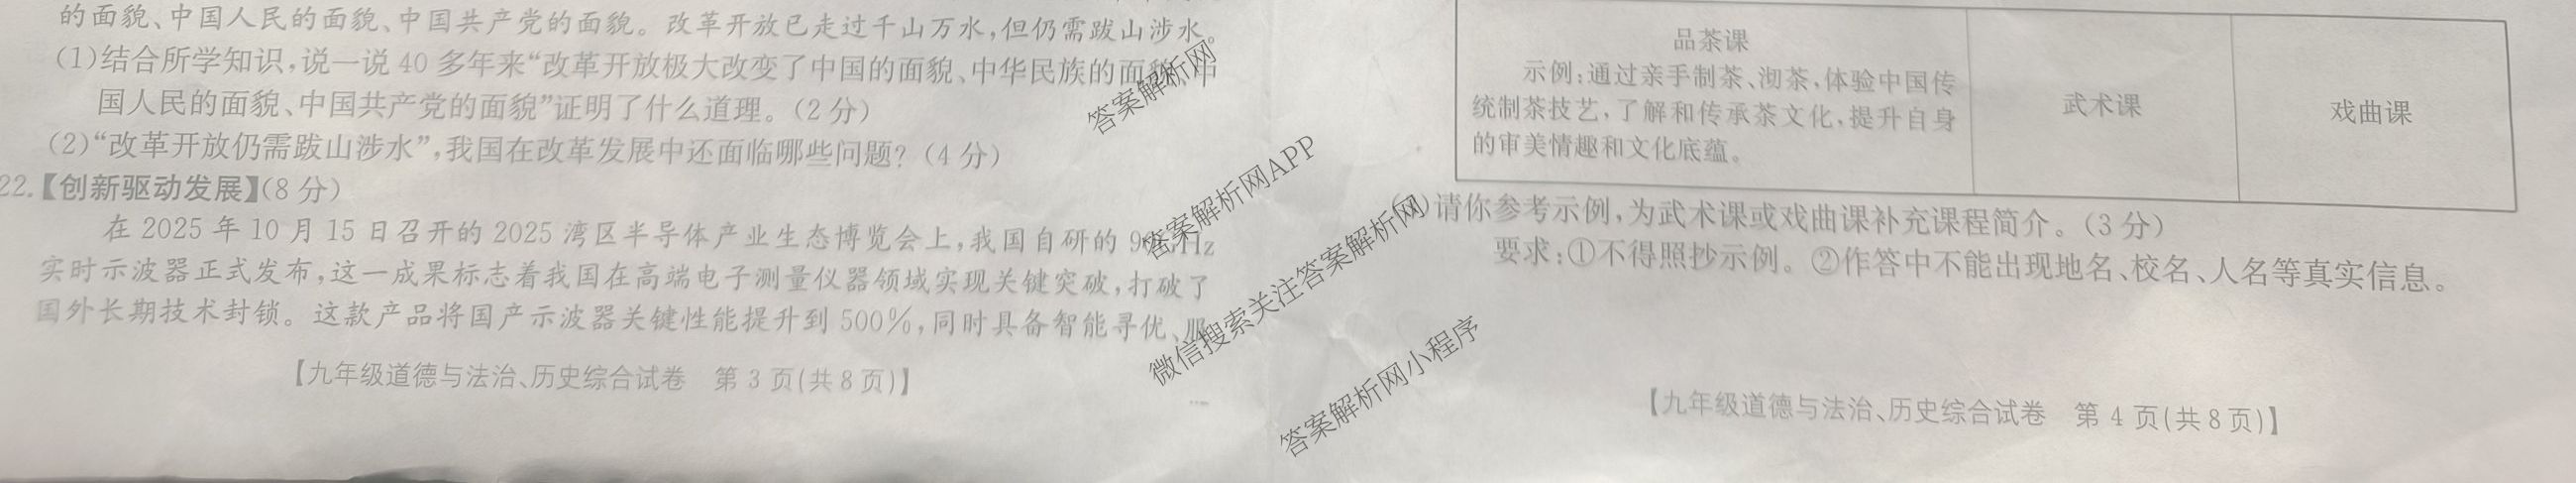 的面貌、中国人民的面貌、中国共产党的面貌。改革开放已走过千山万水,但仍需跋山涉水。
(1)结合所学知识,说一说 40 多年来“改革开放极大改变了中国的面貌、中华民族的面貌、中
国人民的面貌、中国共产党的面貌”证明了什么道理。(2 分)
(2)“改革开放仍需跋山涉水”,我国在改革发展中还面临哪些问题?(4 分)
22.【创新驱动发展】(8 分)
在 2025 年 10 月 15 日召开的 2025 湾区半导体产业生态博览会上,我国自研的 9
实时示波器正式发布,这一成果标志着我国在高端电子测量仪器领域实现关键突破,打破了
国外长期技术封锁。这款产品将国产示波器关键性能提升到 500%,同时具备智能寻优、服
【九年级道德与法治、历史综合试卷 第 3 页(共 8 页)】
品茶课
示例:通过亲手制茶、沏茶,体验中国传
统制茶技艺,了解和传承茶文化,提升自身
的审美情趣和文化底蕴。
武术课
戏曲课
请你参考示例,为武术课或戏曲课补充课程简介。(3 分)
要求:①不得照抄示例。②作答中不能出现地名、校名、人名等真实信息。
【九年级道德与法治、历史综合试卷 第 4 页(共 8 页)】
答案解析网
答案解析网APP
微信搜索关注答案解析网
答案解析网小程序